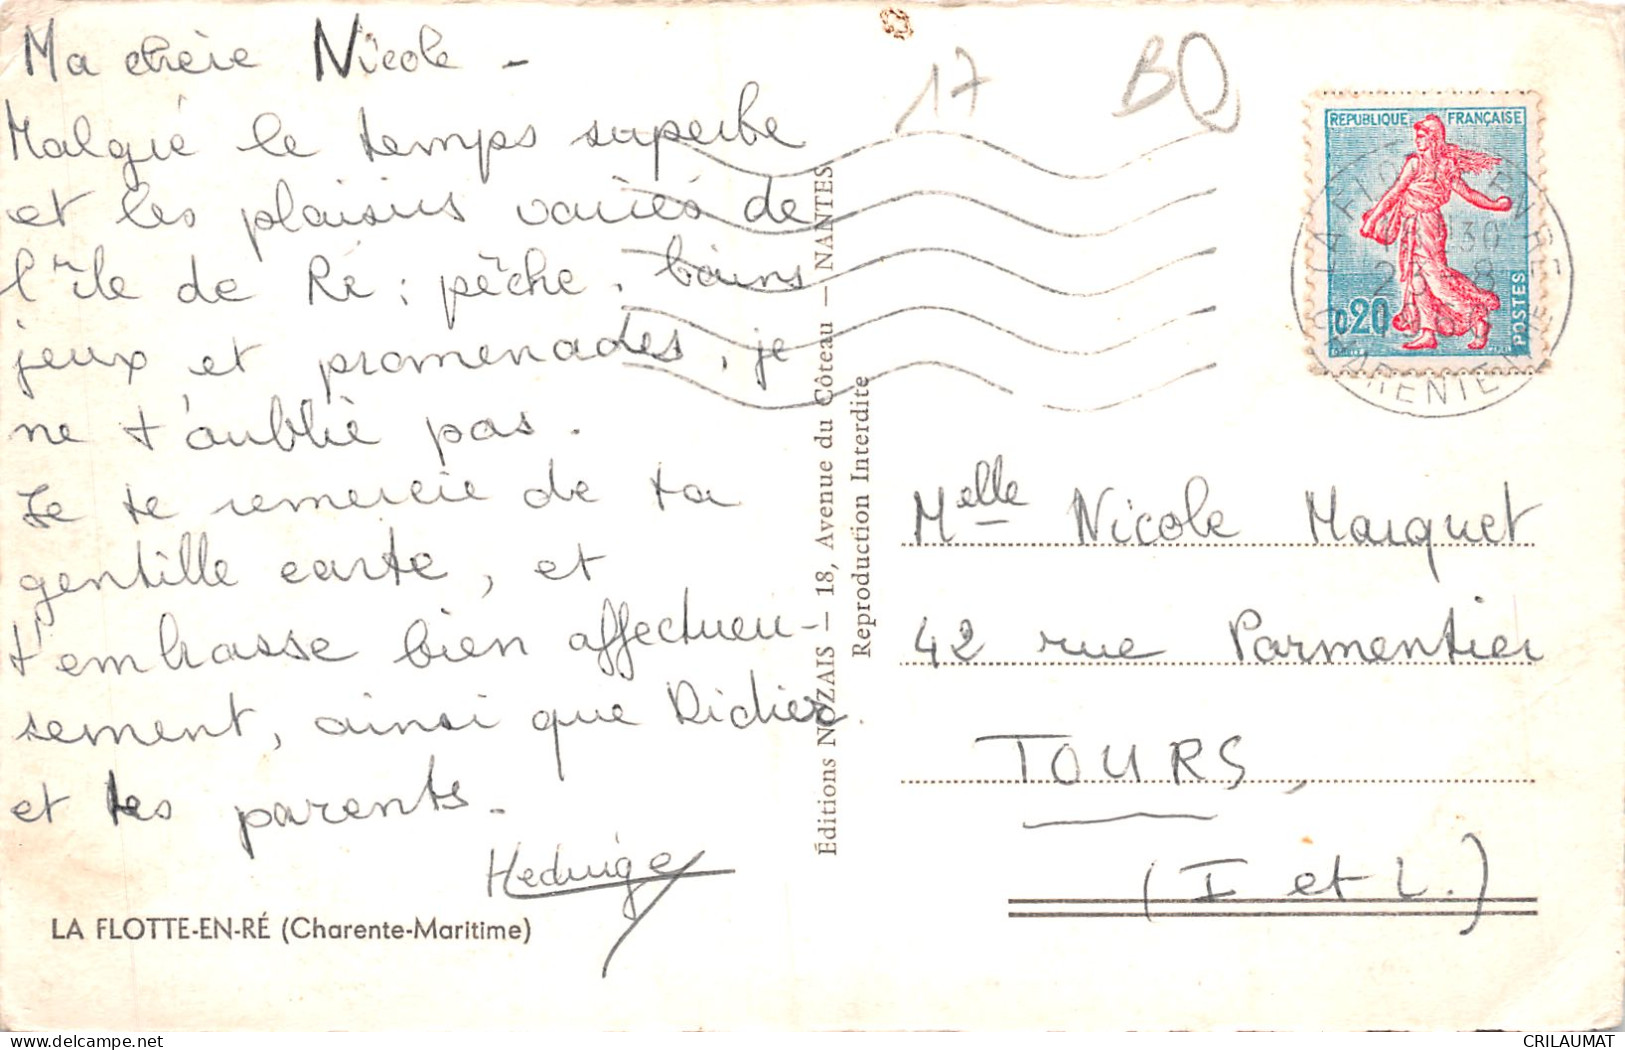 Ma chère Nicole -
Malgré le temps superbe
et les plaisirs variés de
l'île de Ré : pêche, bains
jeux et promenades, je
ne t'oublie pas.
Je te remercie de ta
gentille carte, et
t'embrasse bien affectueu-
sement, ainsi que Didier.
et tes parents.
Hedwige
LA FLOTTE-EN-RÉ (Charente-Maritime)
Éditions NOZAIS — 18, Avenue du Côteau — NANTES
Reproduction Interdite
17 BQ
REPUBLIQUE FRANÇAISE
0,20
POSTES
LA FLOTTE EN RÉ
23 - 8
CHARENTE MME
Melle Nicole Marquet
42 rue Parmentier
TOURS,
(I et L.)
CRILAUMAT